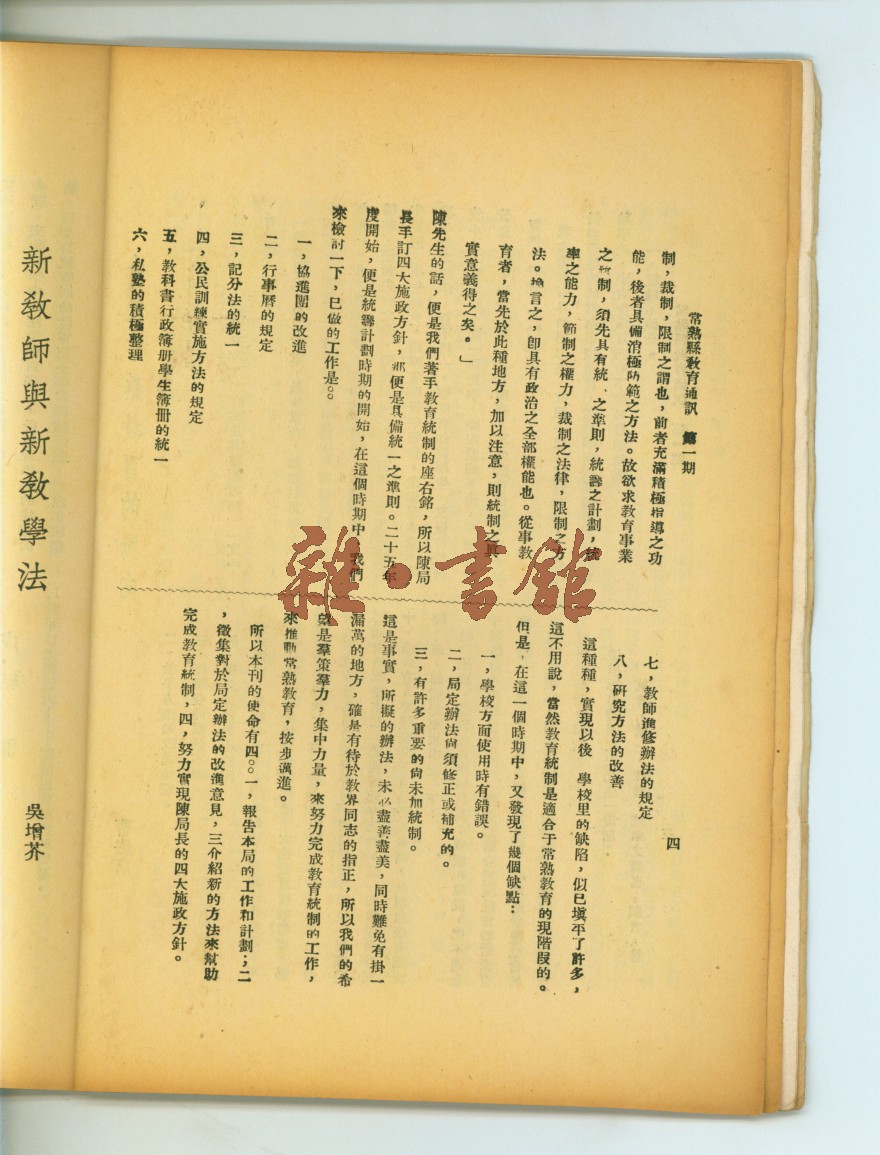 常熟縣教育通訊　第一期
四
制，裁制，限制之謂也，前者充滿積極指導之功
能，後者具備消極防範之方法。故欲求教育事業
之統制，須先具有統一之準則，統籌之計劃，統
率之能力，節制之權力，裁制之法律，限制之方
法。換言之，即具有政治之全部權能也。從事教
育者，當先於此種地方，加以注意，則統制之真
實意義得之矣。」
陳先生的話，便是我們著手教育統制的座右銘，所以陳局
長手訂四大施政方針，那便是具備統一之準則。二十五年
度開始，便是統籌計劃時期的開始，在這個時期中，我們
來檢討一下，已做的工作是。。
一，協進團的改進
二，行事曆的規定
三，記分法的統一
四，公民訓練實施方法的規定
五，教科書行政簿册學生簿册的統一
六，私塾的積極整理
七，教師進修辦法的規定
八，研究方法的改善
這種種，實現以後　學校里的缺陷，似已塡平了許多，
這不用說，當然教育統制是適合于常熟教育的現階段的。
但是，在這一個時期中，又發現了幾個缺點：
一，學校方面使用時有錯誤。
二，局定辦法尙須修正或補充的。
三，有許多重要的尙未加統制。
這是事實，所擬的辦法，未必盡善盡美，同時難免有掛一
漏萬的地方，確是有待於教界同志的指正，所以我們的希
望是羣策羣力，集中力量，來努力完成教育統制的工作，
來推動常熟教育，按步邁進。
所以本刊的使命有四。。一，報告本局的工作和計劃；二
，徵集對於局定辦法的改進意見，三介紹新的方法來幫助
完成教育統制，四，努力實現陳局長的四大施政方針。
新教師與新教學法
吳增芥
雜·書館